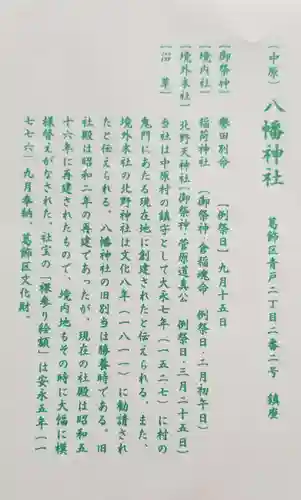 (中原) 八幡神社 葛飾区青戸二丁目二番二号 鎮座
[御祭神] 誉田別命 [例祭日] 九月十五日
[境内社] 稲荷神社 (御祭神・倉稲魂命 例祭日・二月初午日)
[境外末社] 北野天神社(御祭神・菅原道真公 例祭日・三月二十五日)
[沿革] 当社は中原村の鎮守として大永七年(一五二七)に村の
鬼門にあたる現在地に創建されたと伝えられる。また、
境外末社の北野神社は文化八年(一八一一)に勧請され
たと伝えられる。八幡神社の旧別当は勝養時である。旧
社殿は昭和二年の再建であったが、現在の社殿は昭和五
十六年に再建されたもので、境内地もその時に大幅に模
様替えがなされた。社宝の「裸参り絵額」は安永五年(一
七七六)九月奉納。葛飾区文化財。